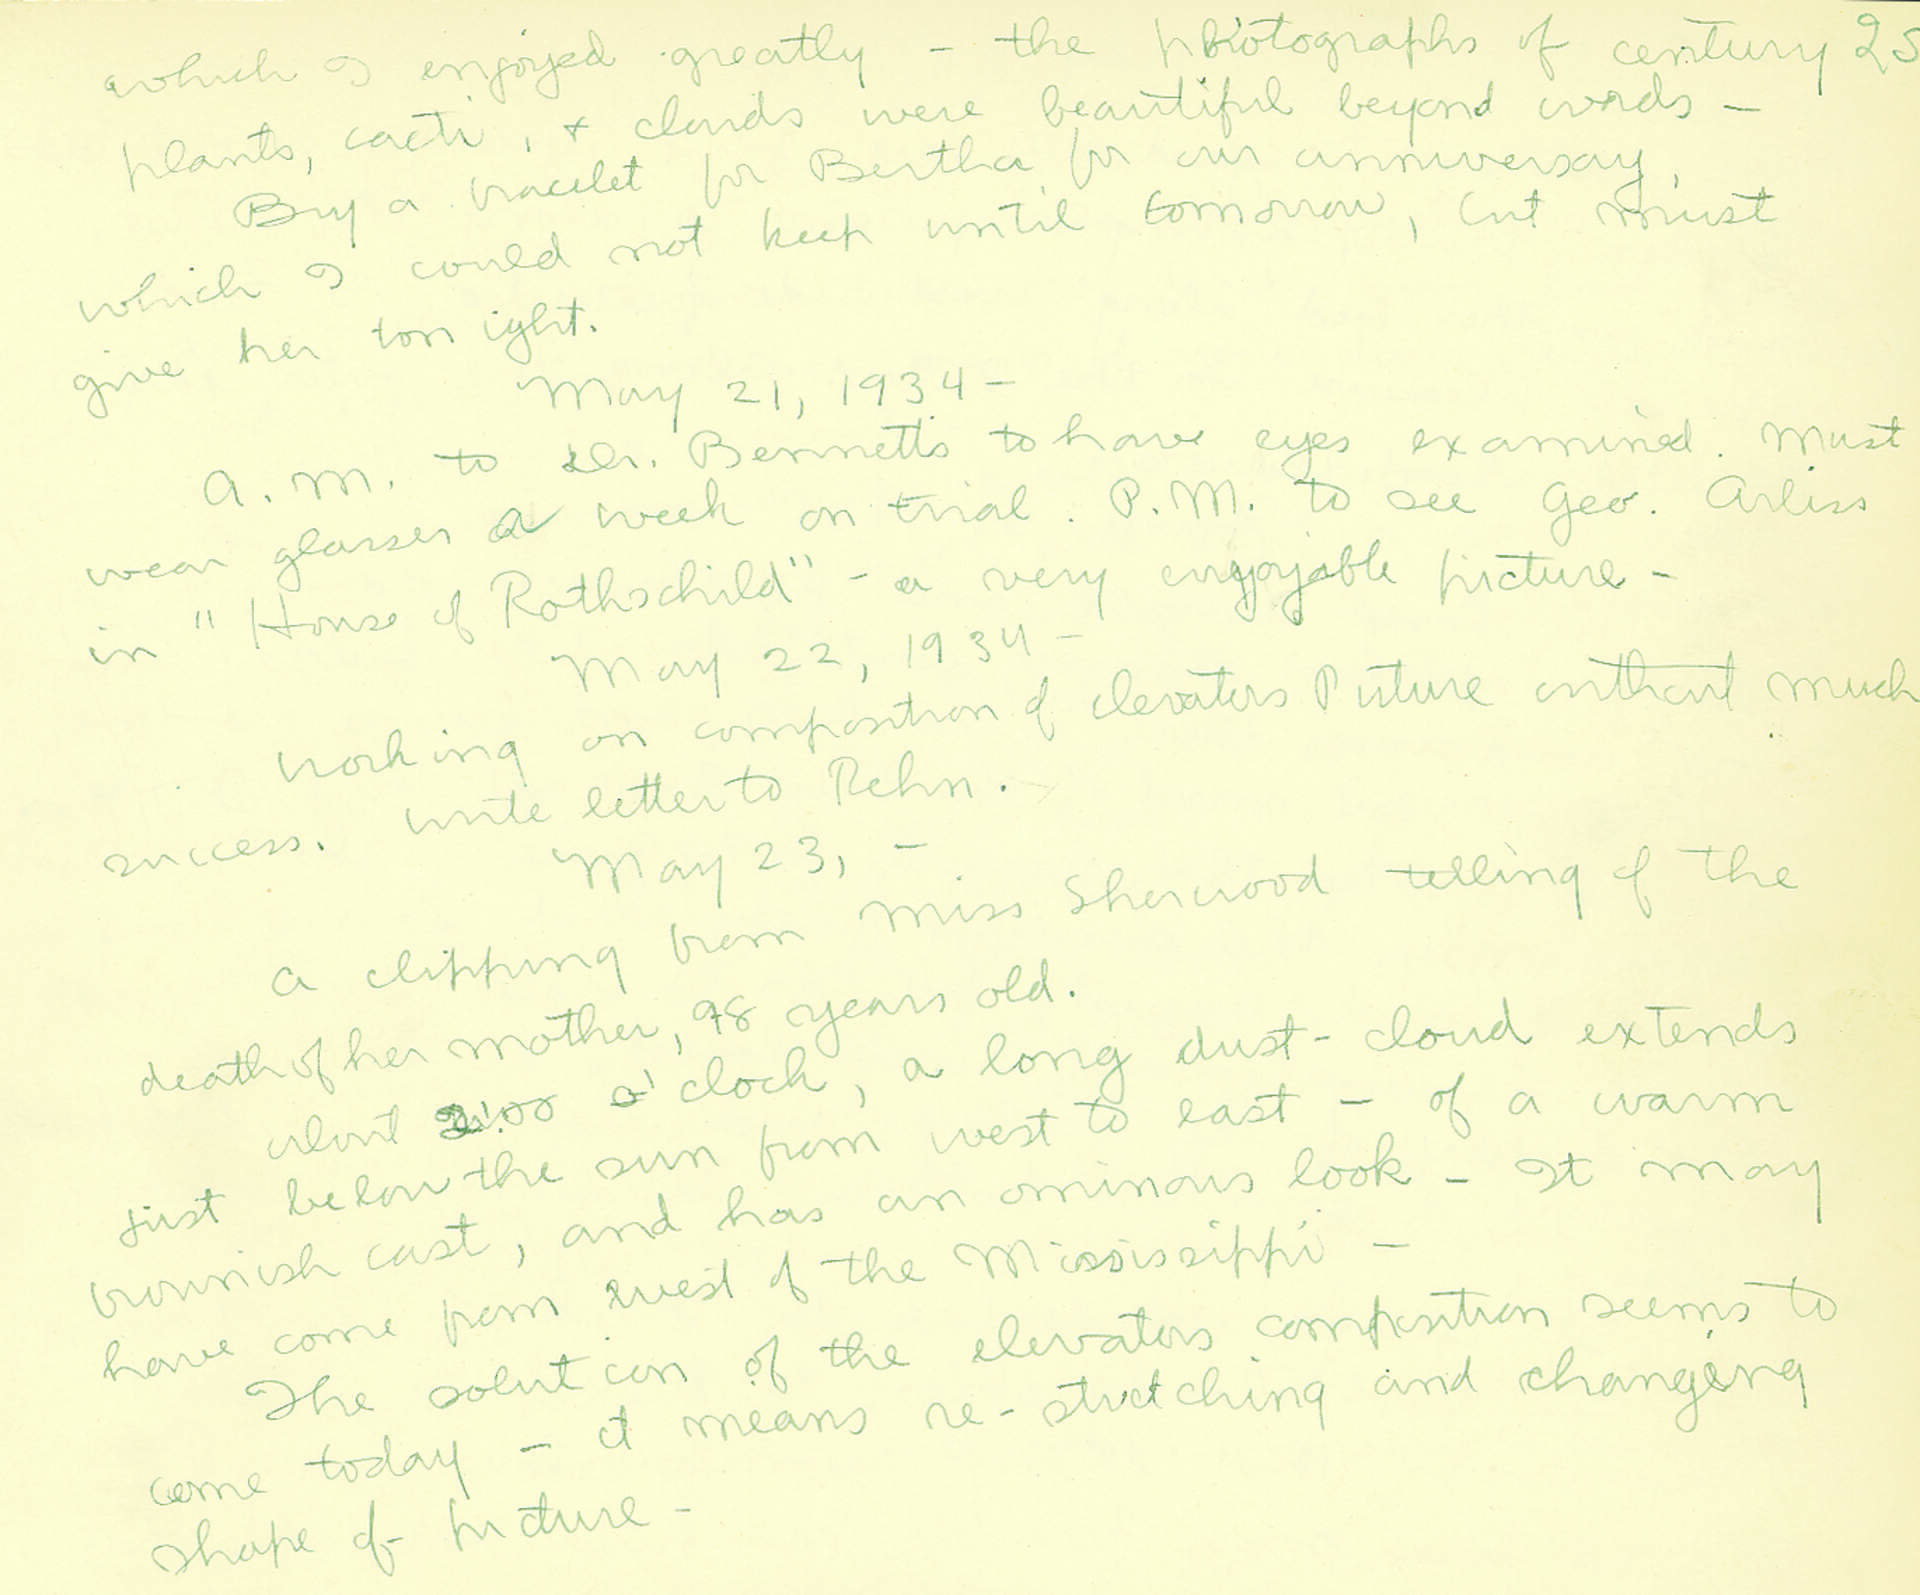 which I enjoyed greatly – the photographs of century 25
plants, cacti, + clouds were beautiful beyond words –
Buy a bracelet for Bertha for our anniversay,
which I could not keep until tomorrow, but must
give her tonight.
May 21, 1934 –
A.M. to Dr. Bennetts to have eyes examined. Must
wear glasses a week on trial. P.M. to see Geo. Arliss
in "House of Rothschild" – a very enjoyable picture –
May 22, 1934 –
Working on composition of elevators Picture without much
success. Write letter to Rehn.
May 23, –
A clipping from Miss Sherwood telling of the
death of her mother, 98 years old.
About 2:00 o'clock, a long dust-cloud extends
just below the sun from west to east – of a warm
brownish cast, and has an ominous look – It may
have come from west of the Mississippi –
The solution of the elevators composition seems to
come today – it means re-stretching and changing
shape of picture –